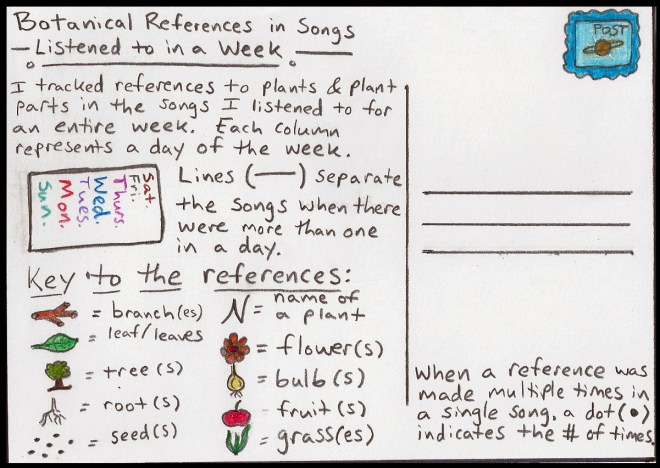 Botanical References in Songs
Listened to in a Week
I tracked references to plants & plant
parts in the songs I listened to for
an entire week. Each column
represents a day of the week.
Sun.
Mon.
Tues.
Wed.
Thurs.
Fri.
Sat.
Lines (—) separate
the songs when there
were more than one
in a day.
Key to the references:
= branch(es)
= leaf/leaves
= tree(s)
= root(s)
= seed(s)
N = name of
a plant
= flower(s)
= bulb(s)
= fruit(s)
= grass(es)
POST
When a reference was
made multiple times in
a single song, a dot(•)
indicates the # of times.